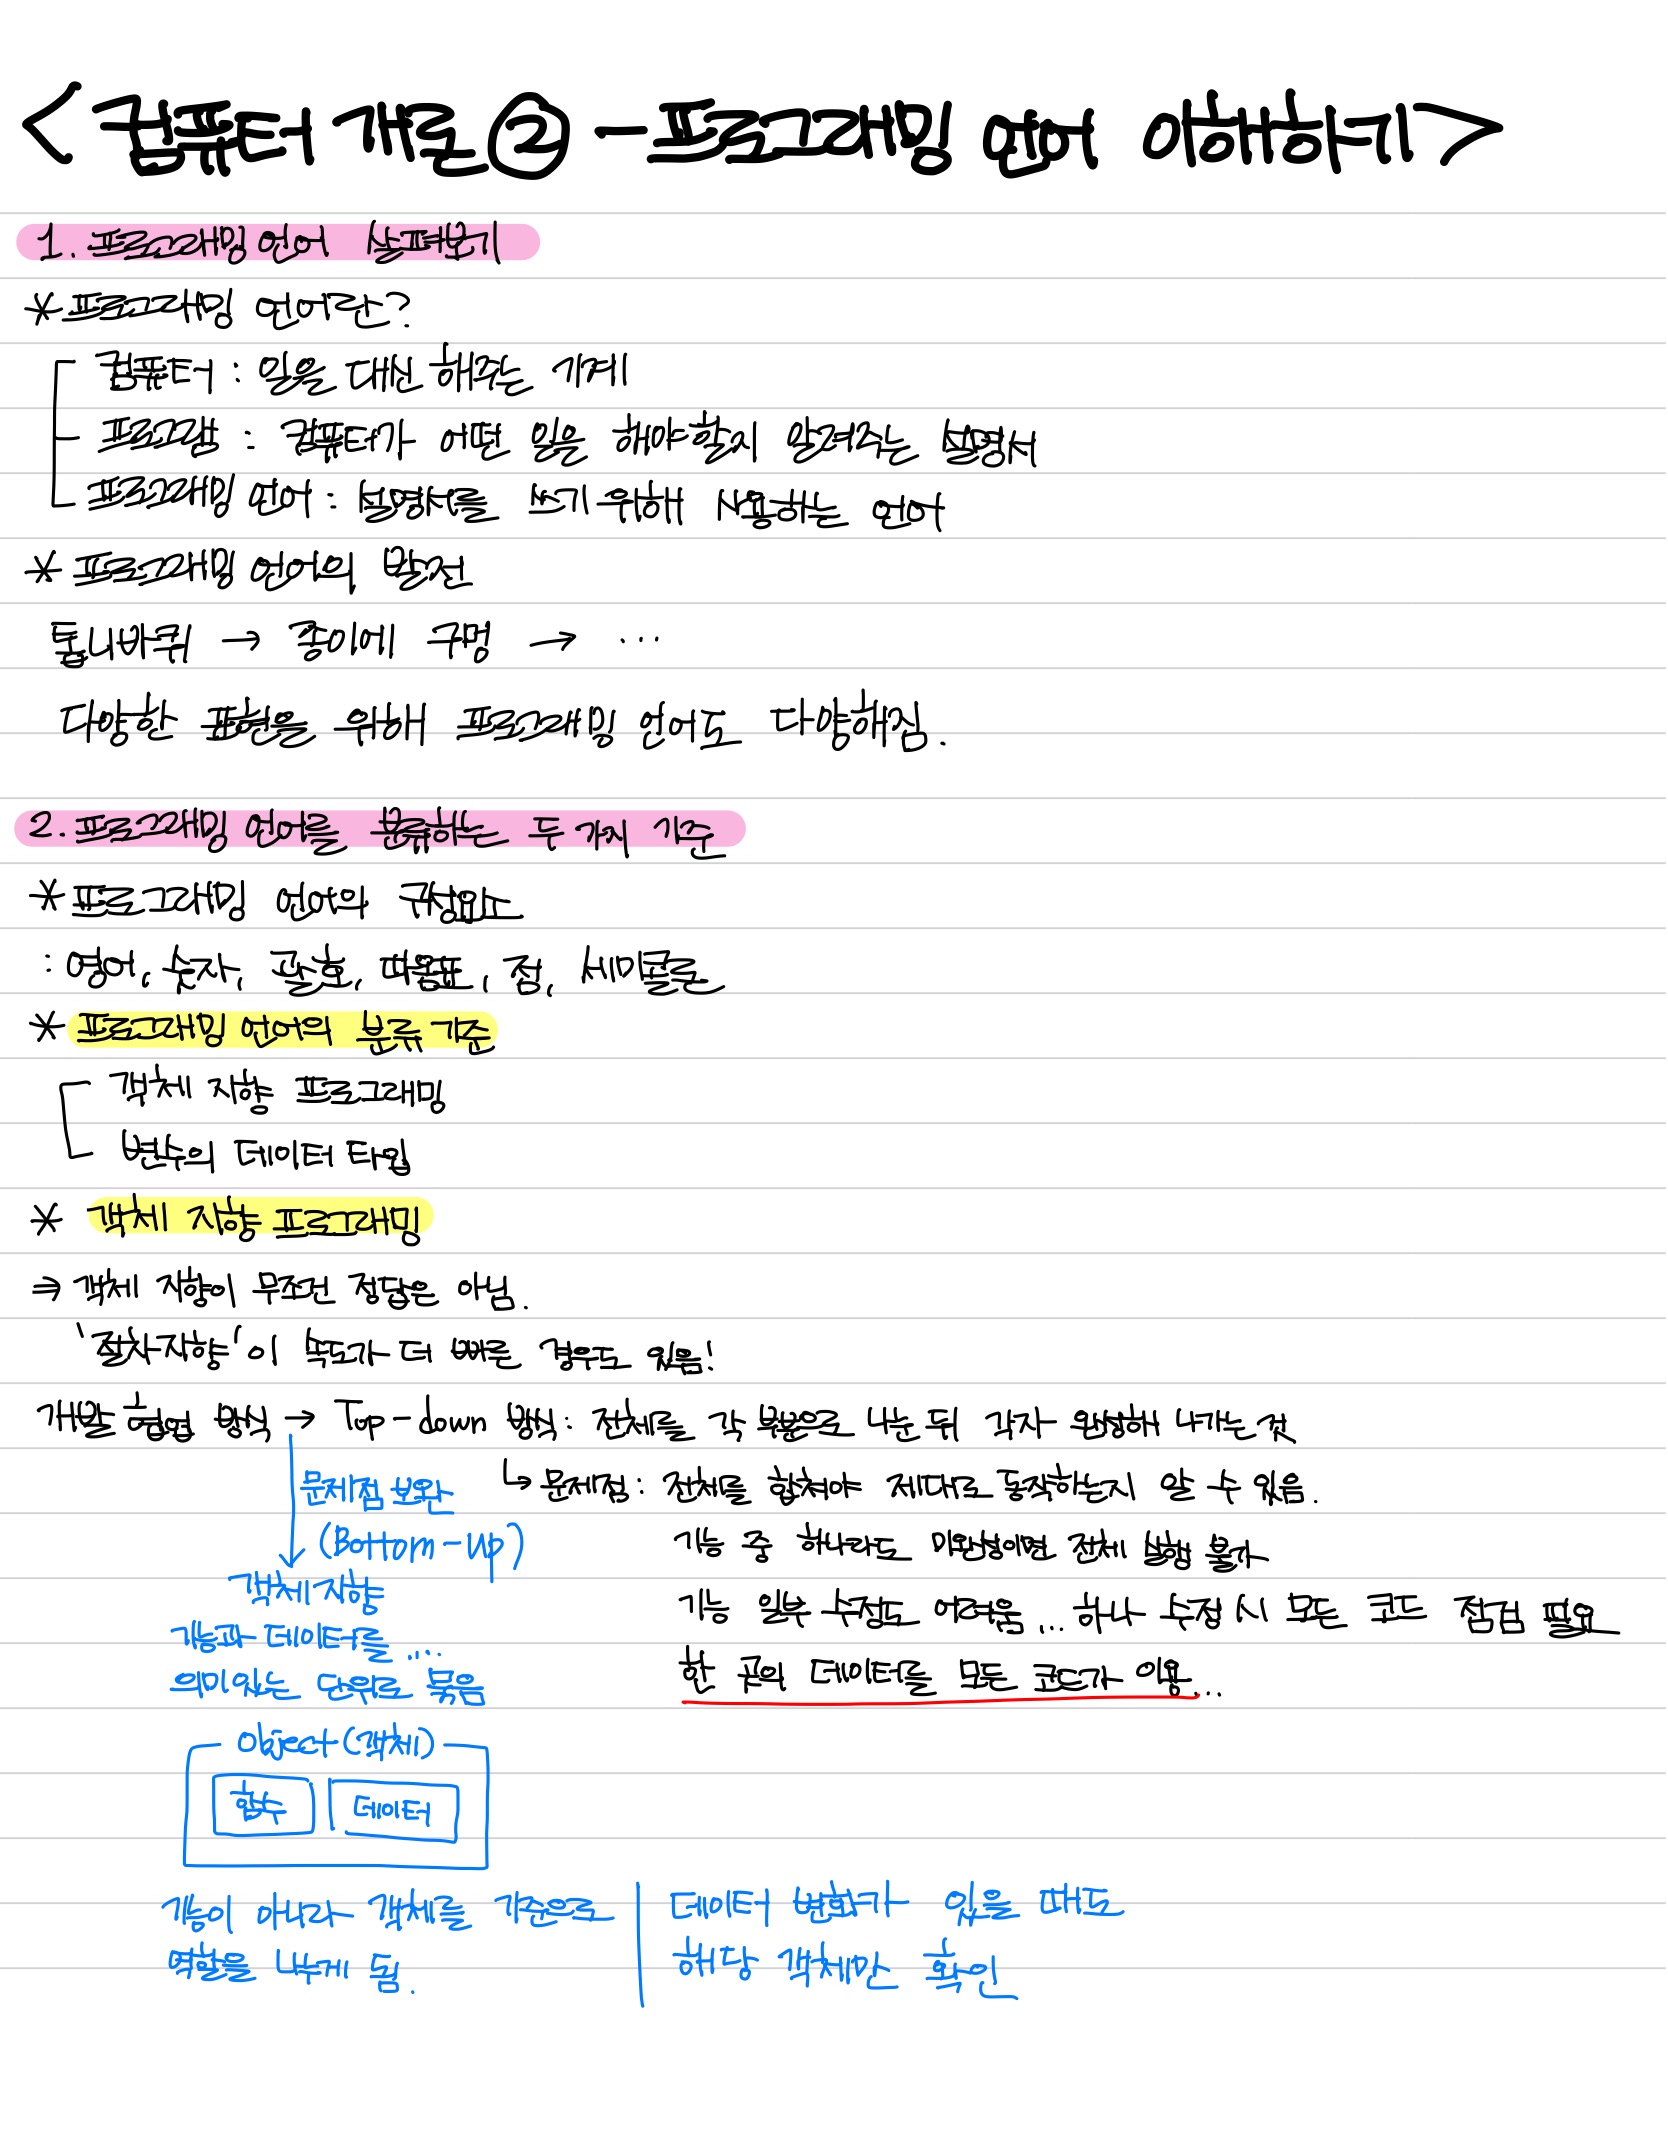 <컴퓨터 개론 ② - 프로그래밍 언어 이해하기>
1. 프로그래밍 언어 살펴보기
* 프로그래밍 언어란?
컴퓨터 : 일을 대신 해주는 기계
프로그램 : 컴퓨터가 어떤 일을 해야할지 알려주는 설명서
프로그래밍 언어 : 설명서를 쓰기 위해 사용하는 언어
* 프로그래밍 언어의 발전
톱니바퀴 → 종이에 구멍 → ...
다양한 표현을 위해 프로그래밍 언어도 다양해짐.
2. 프로그래밍 언어를 분류하는 두 가지 기준
* 프로그래밍 언어의 구성요소
: 영어, 숫자, 괄호, 따옴표, 점, 세미콜론
* 프로그래밍 언어의 분류 기준
객체 지향 프로그래밍
변수의 데이터 타입
* 객체 지향 프로그래밍
⇒ 객체 지향이 무조건 정답은 아님.
'절차지향'이 속도가 더 빠른 경우도 있음!
개발 협업 방식 → Top-down 방식 : 전체를 각 부분으로 나눈 뒤 각자 완성해 나가는 것
↳ 문제점 : 전체를 합쳐야 제대로 동작하는지 알 수 있음.
기능 중 하나라도 미완성이면 전체 실행 불가
기능 일부 수정도 어려움... 하나 수정 시 모든 코드 점검 필요
한 곳의 데이터를 모든 코드가 이용...
문제점 보완
(Bottom-up)
객체지향
기능과 데이터를 ...
의미있는 단위로 묶음
Object(객체)
함수 데이터
기능이 아니라 객체를 기준으로
역할을 나누게 됨.
데이터 변화가 있을 때도
해당 객체만 확인